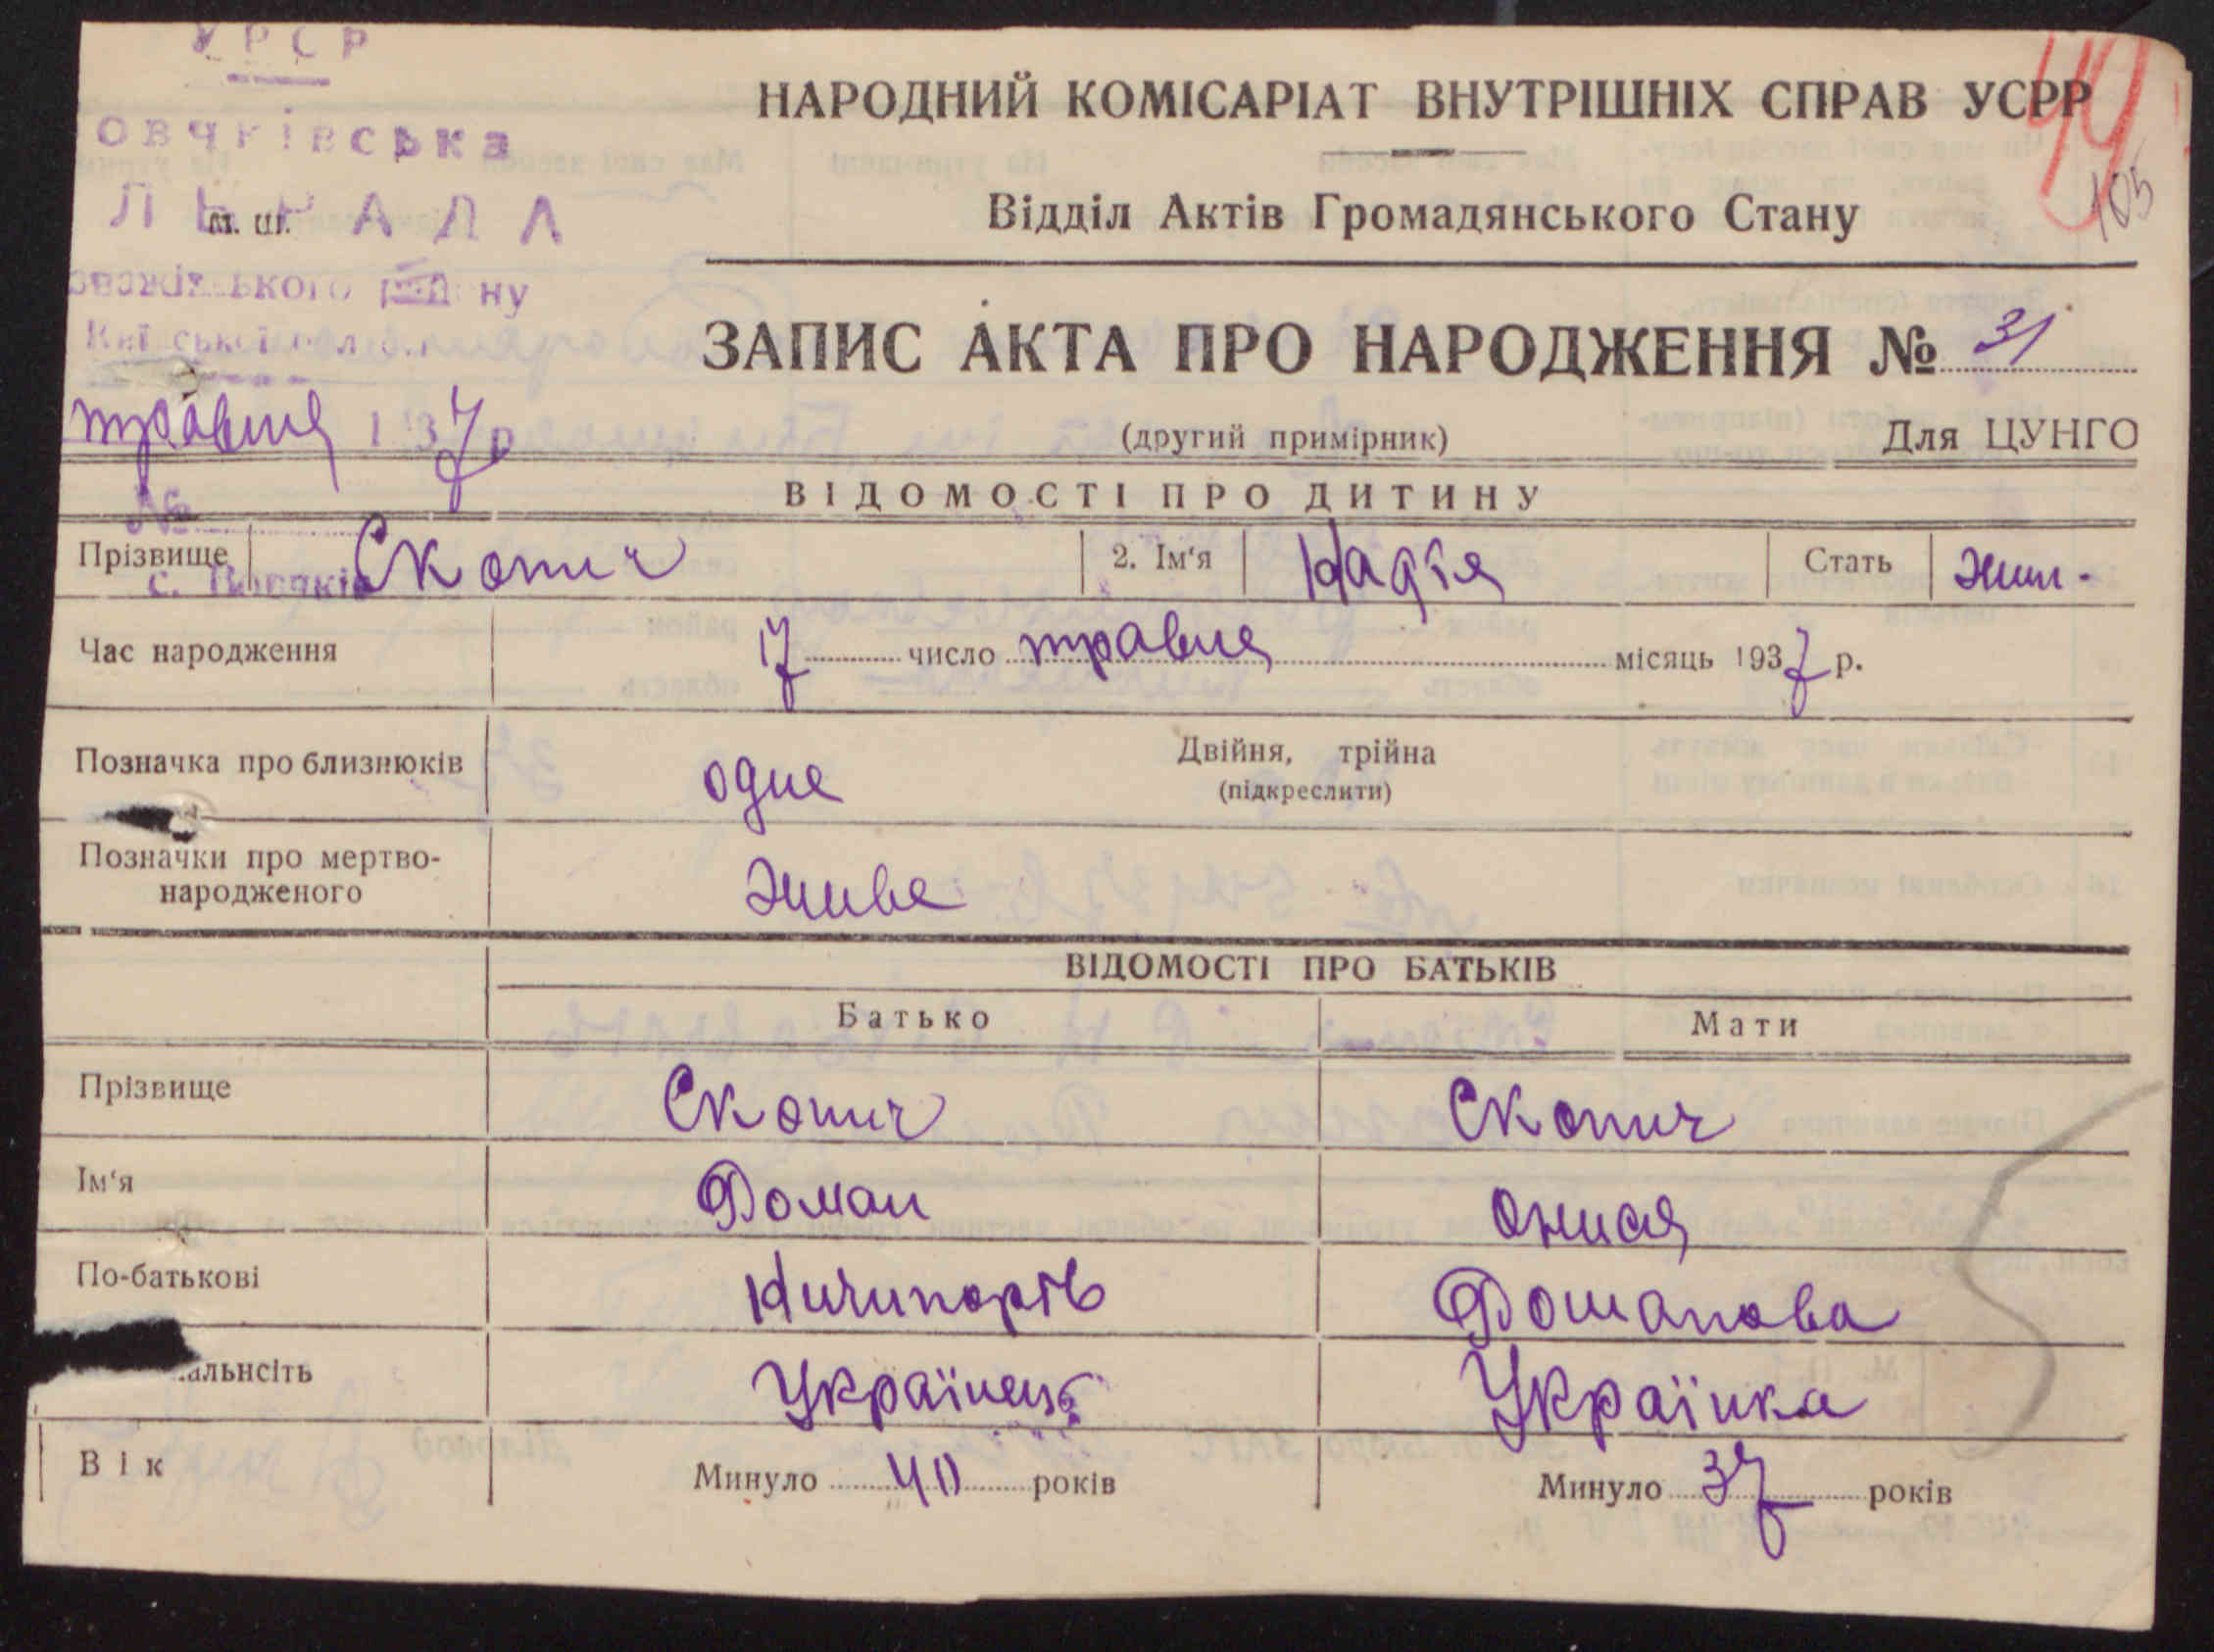 УРСР
НАРОДНИЙ КОМІСАРІАТ ВНУТРІШНІХ СПРАВ УСРР
105
Відділ Актів Громадянського Стану
ЗАПИС АКТА ПРО НАРОДЖЕННЯ № 31
травня 1937р
(другий примірник)
Для ЦУНГО
ВІДОМОСТІ ПРО ДИТИНУ
№
Прізвище Скопич 2. Ім'я Надія Стать жин.
Час народження 17 число травня місяць 1937 р.
Позначка про близнюків одне Двійня, трійна
(підкреслити)
Позначки про мертво-
народженого живе
ВІДОМОСТІ ПРО БАТЬКІВ
Батько Мати
Прізвище Скопич Скопич
Ім'я Доман Онися
По-батькові Ничипорів
альнсіть Українець Українка
Вік Минуло 40 років Минуло 37 років